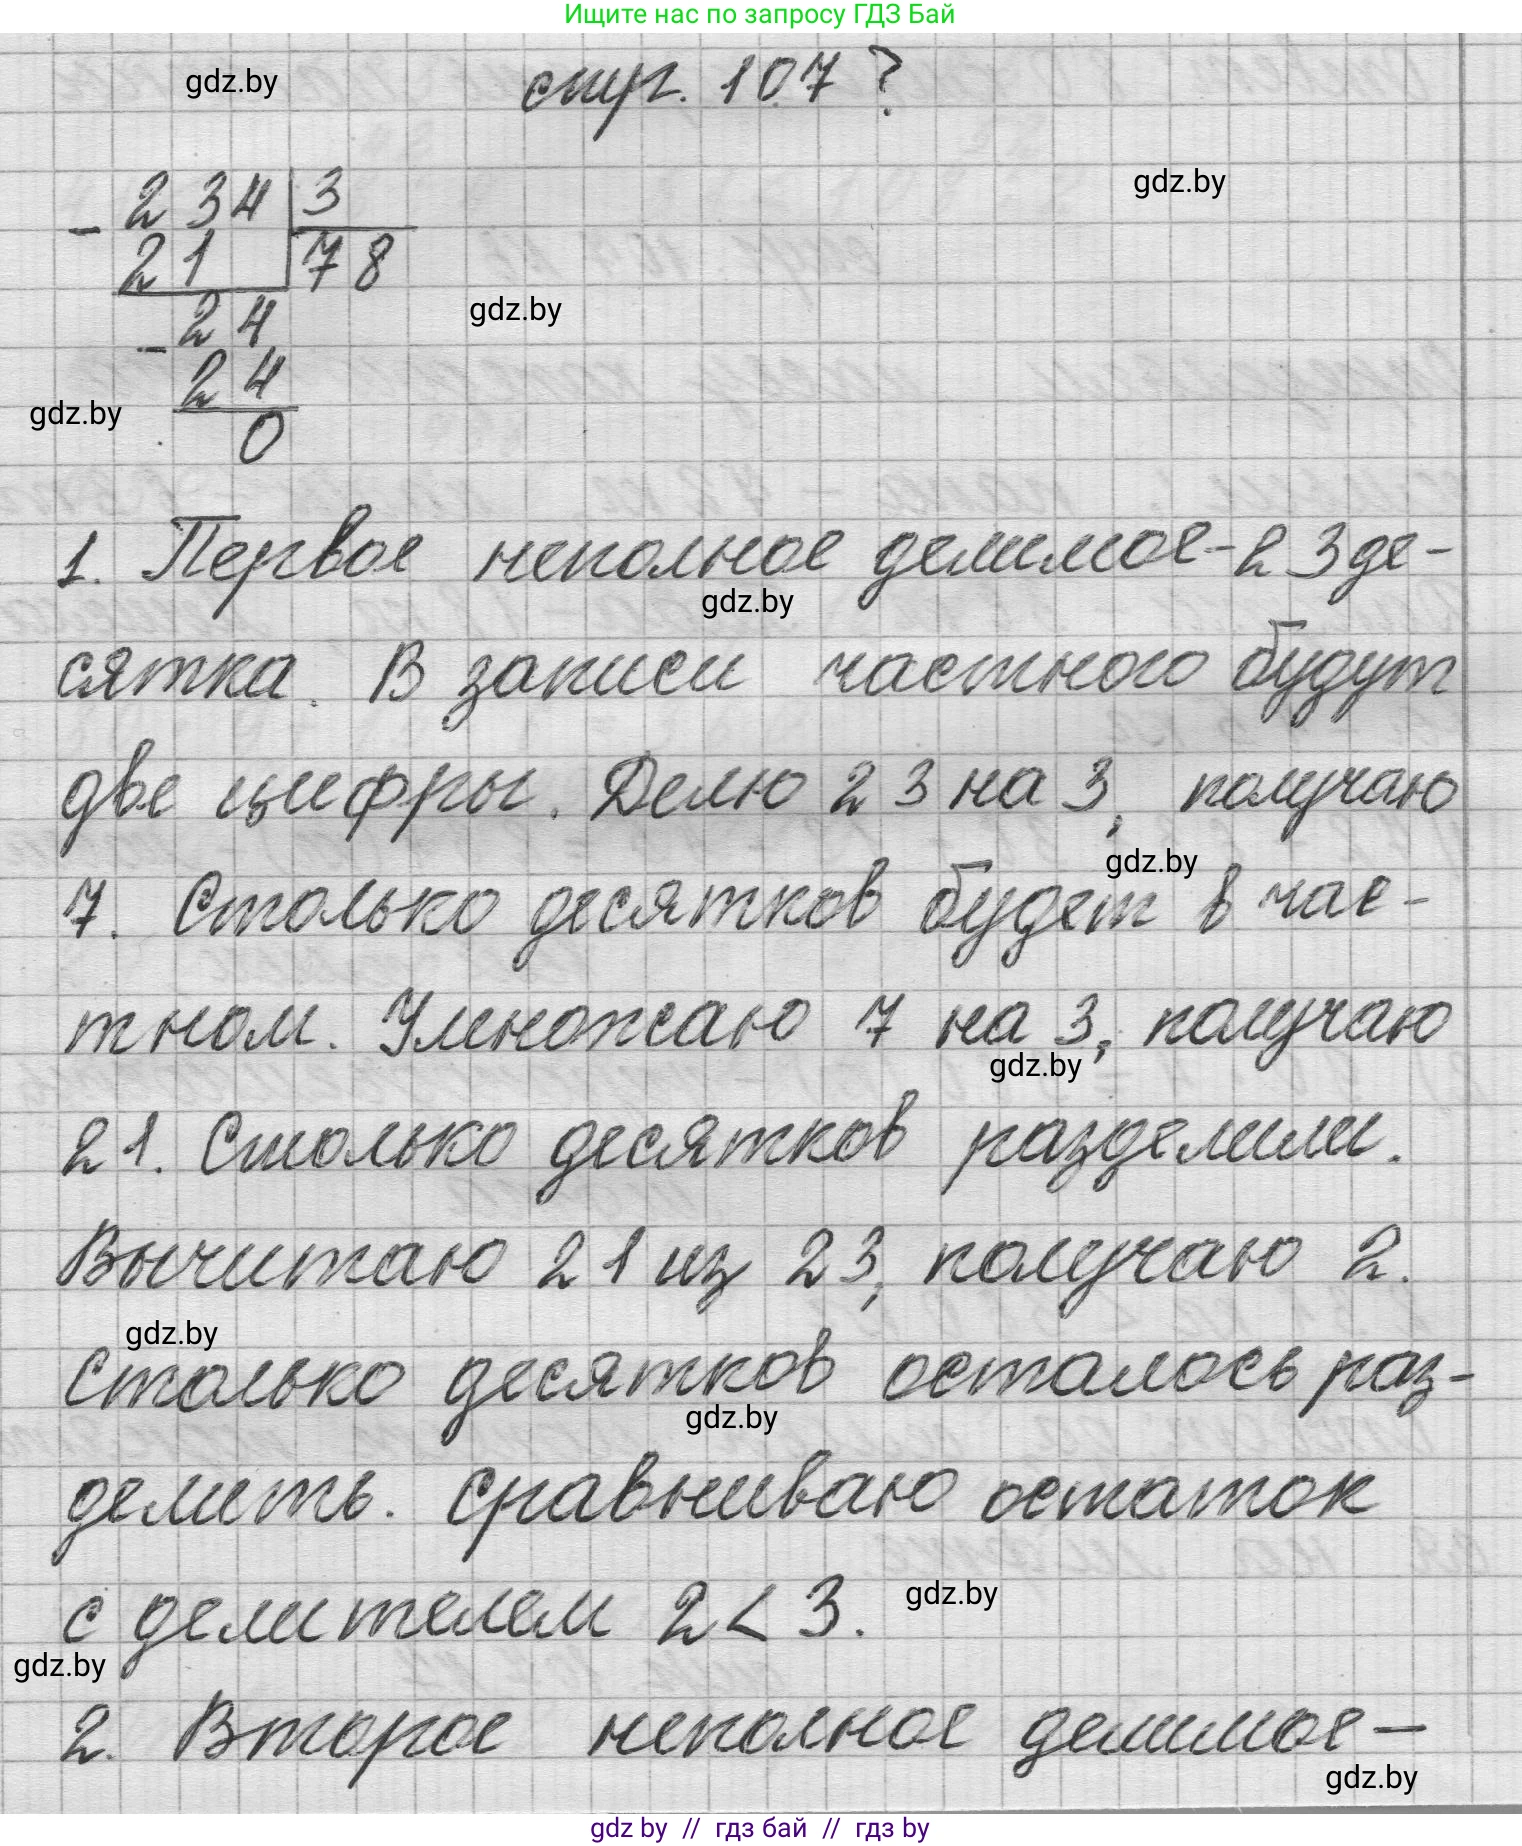 Ищите нас по запросу ГДЗ Бай
gdz.by
стр. 107 ?
gdz.by
- 234 3
21 78
gdz.by
- 24
24
gdz.by
0
1. Первое неполное делимое - 23 де-
gdz.by
сятка. В записи частного будут
две цифры. Делю 23 на 3, получаю
gdz.by
7. Столько десятков будет в час-
тном. Умножаю 7 на 3, получаю
gdz.by
21. Столько десятков разделили.
Вычитаю 21 из 23, получаю 2.
gdz.by
Столько десятков осталось раз-
gdz.by
делить. Сравниваю остаток
gdz.by
с делителем 2 < 3.
gdz.by
2. Второе неполное делимое —
gdz.by
gdz by // гдз бай // гдз by